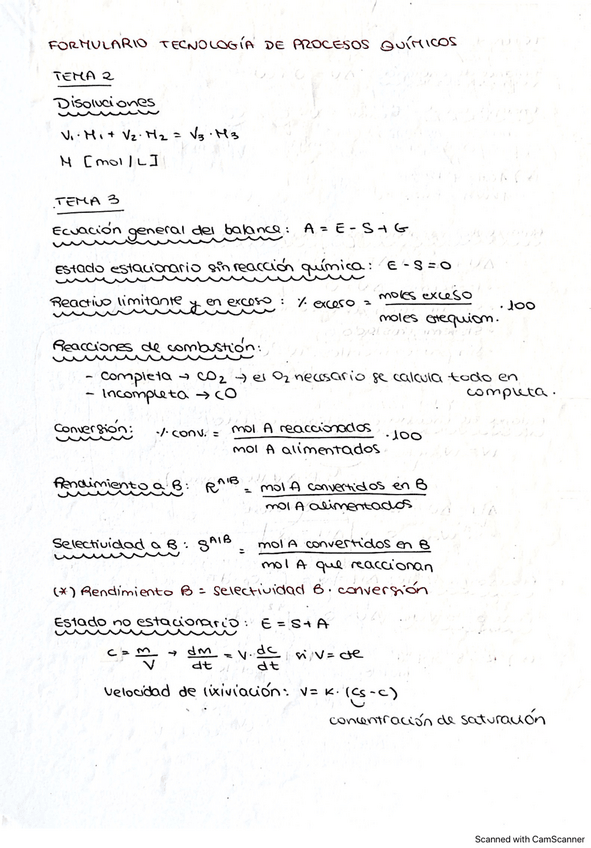 FORMULARIO TECNOLOGÍA DE PROCESOS QUÍMICOS
TEMA 2
Disoluciones
V₁·M₁ + V₂·M₂ = V₃·M₃
M [mol/L]
TEMA 3
Ecuación general del balance: A = E - S + G
Estado estacionario sin reacción química: E - S = 0
Reactivo limitante y en exceso: % exceso = moles exceso / moles etequiom. · 100
Reacciones de combustión:
- Completa → CO₂ → el O₂ necesario se calcula todo en completa.
- Incompleta → CO
Conversión: % conv. = mol A reaccionados / mol A alimentados · 100
Rendimiento a B: R^A/B = mol A convertidos en B / mol A alimentados
Selectividad a B: S^A/B = mol A convertidos en B / mol A que reaccionan
(*) Rendimiento B = Selectividad B · conversión
Estado no estacionario: E = S + A
c = m/V → dm/dt = V · dc/dt si V = cte
Velocidad de lixiviación: V = K · (Cs - C)
concentración de saturación
Scanned with CamScanner